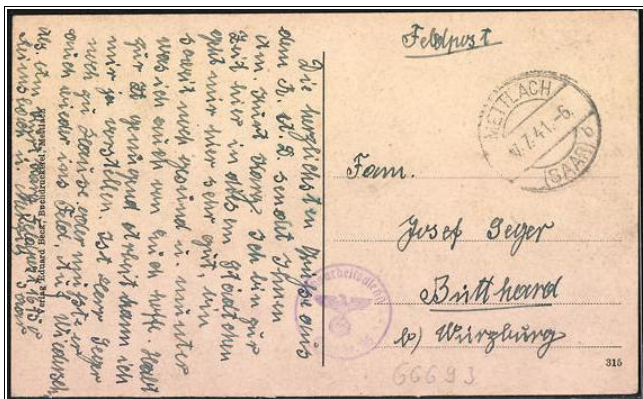 Feldpost
METTLACH
7.41.-6.
(SAAR) b
Fam.
Josef Seger
Bütthard
b) Würzburg
315
66693
Die herzlichsten Grüße aus
dem R.A.D. sendet Ihnen
Ihr. Kurt Lang. Ich bin zur
Zeit hier in diesem Städtchen
gut mir hier sehr gut, bin
soweit noch gesund u. munter
was ich auch von euch hoffe. Habt
genügend Arbeit kann ich
mir ja vorstellen ist Herr Seger
noch zu Hause oder mußte er
auch wieder ins Feld. Auf Wiederseh
Verlag Eduard Beck, Buchdruckerei, Mettlach